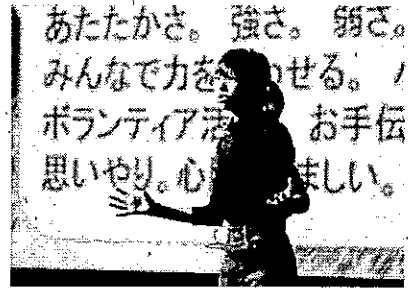 あたたかさ。 強さ。 弱さ。
みんなで力を わせる。
ボランティア活 お手伝
思いやり。心 ましい。